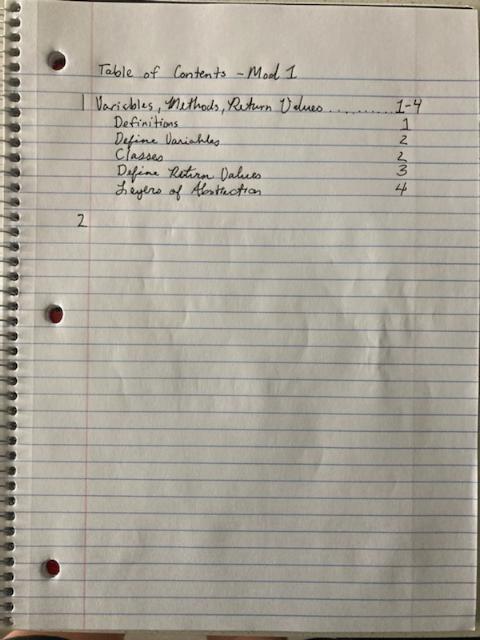 Table of Contents - Mod 1
1 Variables, Methods, Return Values .......... 1-4
Definitions 1
Define Variables 2
Classes 2
Define Return Values 3
Layers of Abstraction 4
2